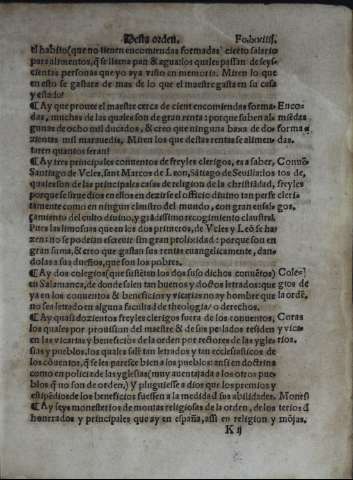 Desta orden. Fo.lxviiij.
el habito (que no tienen encomiendas formadas) cierto salario
para alimentos, q̃ se llama pan & agua: los quales passan de seys-
cientas personas que yo aya visto en memoria. Miren lo que
en esto se gastara de mas de lo que el maestre gasta en su casa
y estado?
¶ Ay que prouee el maestre cerca de cient encomiendas forma- Enco-
das, muchas de las quales son de gran renta: porque suben al- miedas
gunas de ocho mil ducados, & creo que ninguna baxa de do- forma
zientas mil marauedis. Miren los que destas rentas se alimen- das.
taren quantos seran?
¶ Ay tres principales conuentos de freyles clerigos, es a saber, Conuẽ
Santiago de Vcles, sant Marcos de Leon, Sãtiago de Seuilla: tos de
quales son de las principales casas de religion de la christiãdad, freyles
porque se sirue dios en ellos en dezirse el officio diuino tan perfe clerigos
ctamente como en ningun claustro del mundo, con gran ensal- gos.
çamiento del culto diuino, y grãdissimo recogimiento claustral.
Pues las limosnas que en los dos primeros, de Vcles y Leõ se ha
zen: no se podrian escreuir sin gran prolixidad: porque son en
gran suma, & creo que gastan sus rentas euangelicamente, dan-
dolas a sus dueños, que son los pobres.
¶ Ay dos colegios (que sustẽtan los dos suso dichos conuẽtos) Cole-
en Salamanca, de donde salen tan buenos y doctos letrados: que gios de
ya en los conuentos & beneficios y vicarias no ay hombre que la ordẽ.
no sea letrado en alguna facultad de theologia o derechos.
¶ Ay quasi dozientos freyles clerigos fuera de los conuentos, Curas
los quales por prouision del maestre & de sus perlados residen y vica-
en las vicarias y beneficios de la orden por rectores de las ygle- rios.
sias y pueblos, los quales salẽ tan letrados y tan ecclesiasticos de
los cõuentos, q̃ se les paresce bien a los pueblos: assi en doctrina
como en policia de las yglesias (muy auentajada a los otros pue-
blos q̃ no son de orden.) Y pluguiesse a dios que los premios y
estipẽdios de los beneficios fuessen a la medida d̃ sus abilidades. Mones
¶ Ay seys monesterios de monjas religiosas de la orden, de los terios d̃
honrrados y principales que ay en españa, assi en religion y mõjas.
K ij